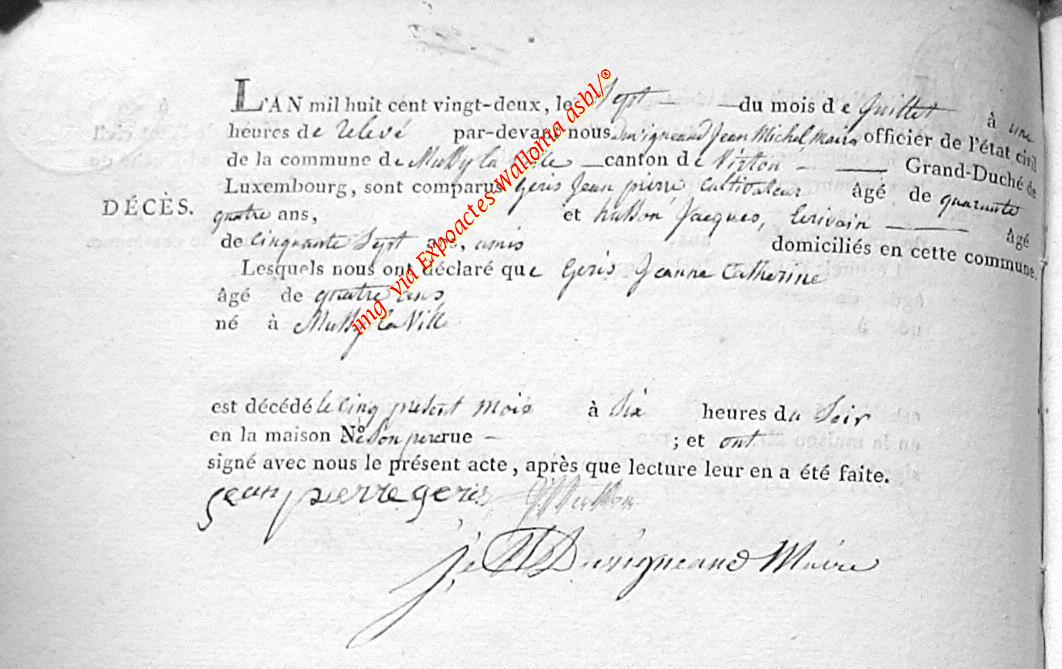 L'AN mil huit cent vingt-deux, le Sept du mois de Juillet à une
heures de relevé par-devant-nous Duvigneaud Jean Michel Maire officier de l'état civil
de la commune de Mussy la Ville canton de Virton Grand-Duché de
Luxembourg, sont comparus Geris Jean pierre, Cultivateur âgé de quarante
DÉCÈS. quatre ans, et husson Jacques, Ecrivain âgé
de Cinquante Sept ans, amis domiciliés en cette commune.
Lesquels nous ont déclaré que Geris Jeanne Catherine
âgé de quatre ans
né à Mussy la Ville
est décédé le Cinq present mois à Six heures du Soir
en la maison N.º de Son pere rue - ; et ont
signé avec nous le présent acte, après que lecture leur en a été faite.
jean pierre geris J Husson
Duvigneaud Maire
img via Expoactes Wallonia asbl/®